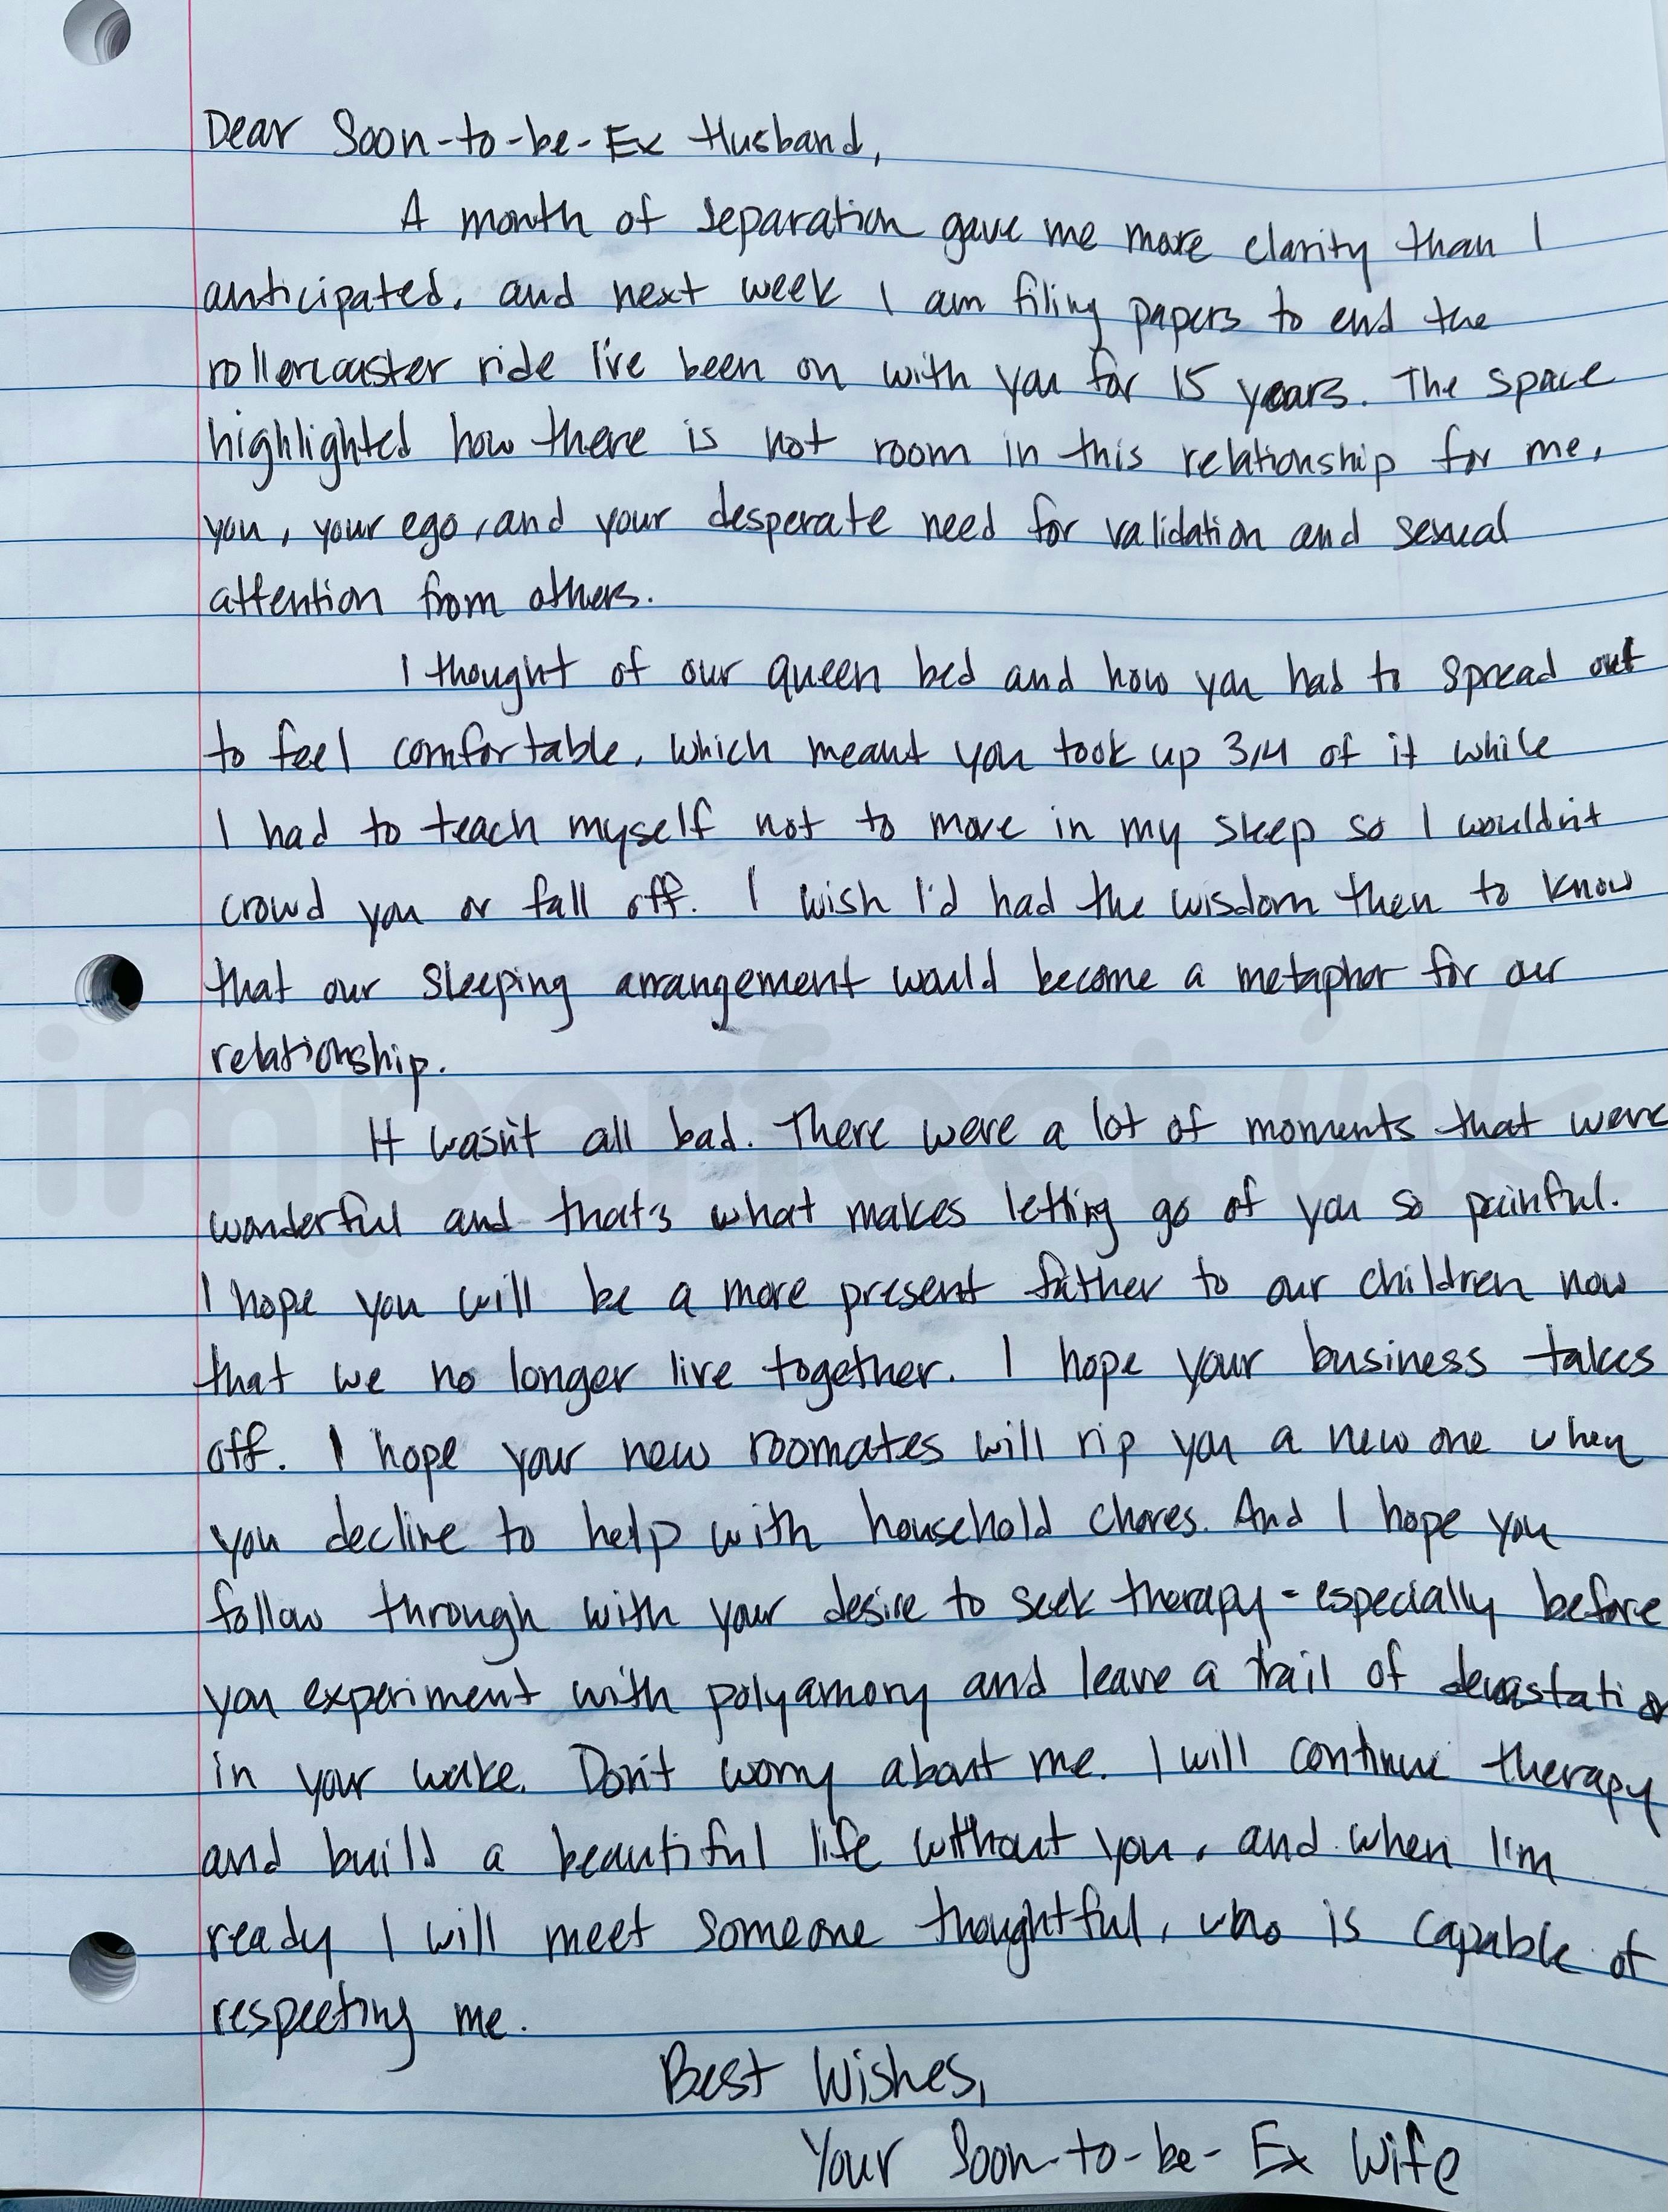 Dear Soon-to-be-Ex Husband,
A month of separation gave me more clarity than I
anticipated, and next week I am filing papers to end the
rollercoaster ride I've been on with you for 15 years. The space
highlighted how there is not room in this relationship for me,
you, your ego, and your desperate need for validation and sexual
attention from others.
I thought of our queen bed and how you had to spread out
to feel comfortable, which meant you took up 3/4 of it while
I had to teach myself not to move in my sleep so I wouldn't
crowd you or fall off. I wish I'd had the wisdom then to know
that our sleeping arrangement would become a metaphor for our
relationship.
imperfect ink
It wasn't all bad. There were a lot of moments that were
wonderful and that's what makes letting go of you so painful.
I hope you will be a more present father to our children now
that we no longer live together. I hope your business takes
off. I hope your new roomates will rip you a new one when
you decline to help with household chores. And I hope you
follow through with your desire to seek therapy - especially before
you experiment with polyamory and leave a trail of devastation
in your wake. Don't worry about me. I will continue therapy
and build a beautiful life without you, and when I'm
ready I will meet someone thoughtful, who is capable of
respecting me.
Best Wishes,
Your Soon-to-be-Ex Wife